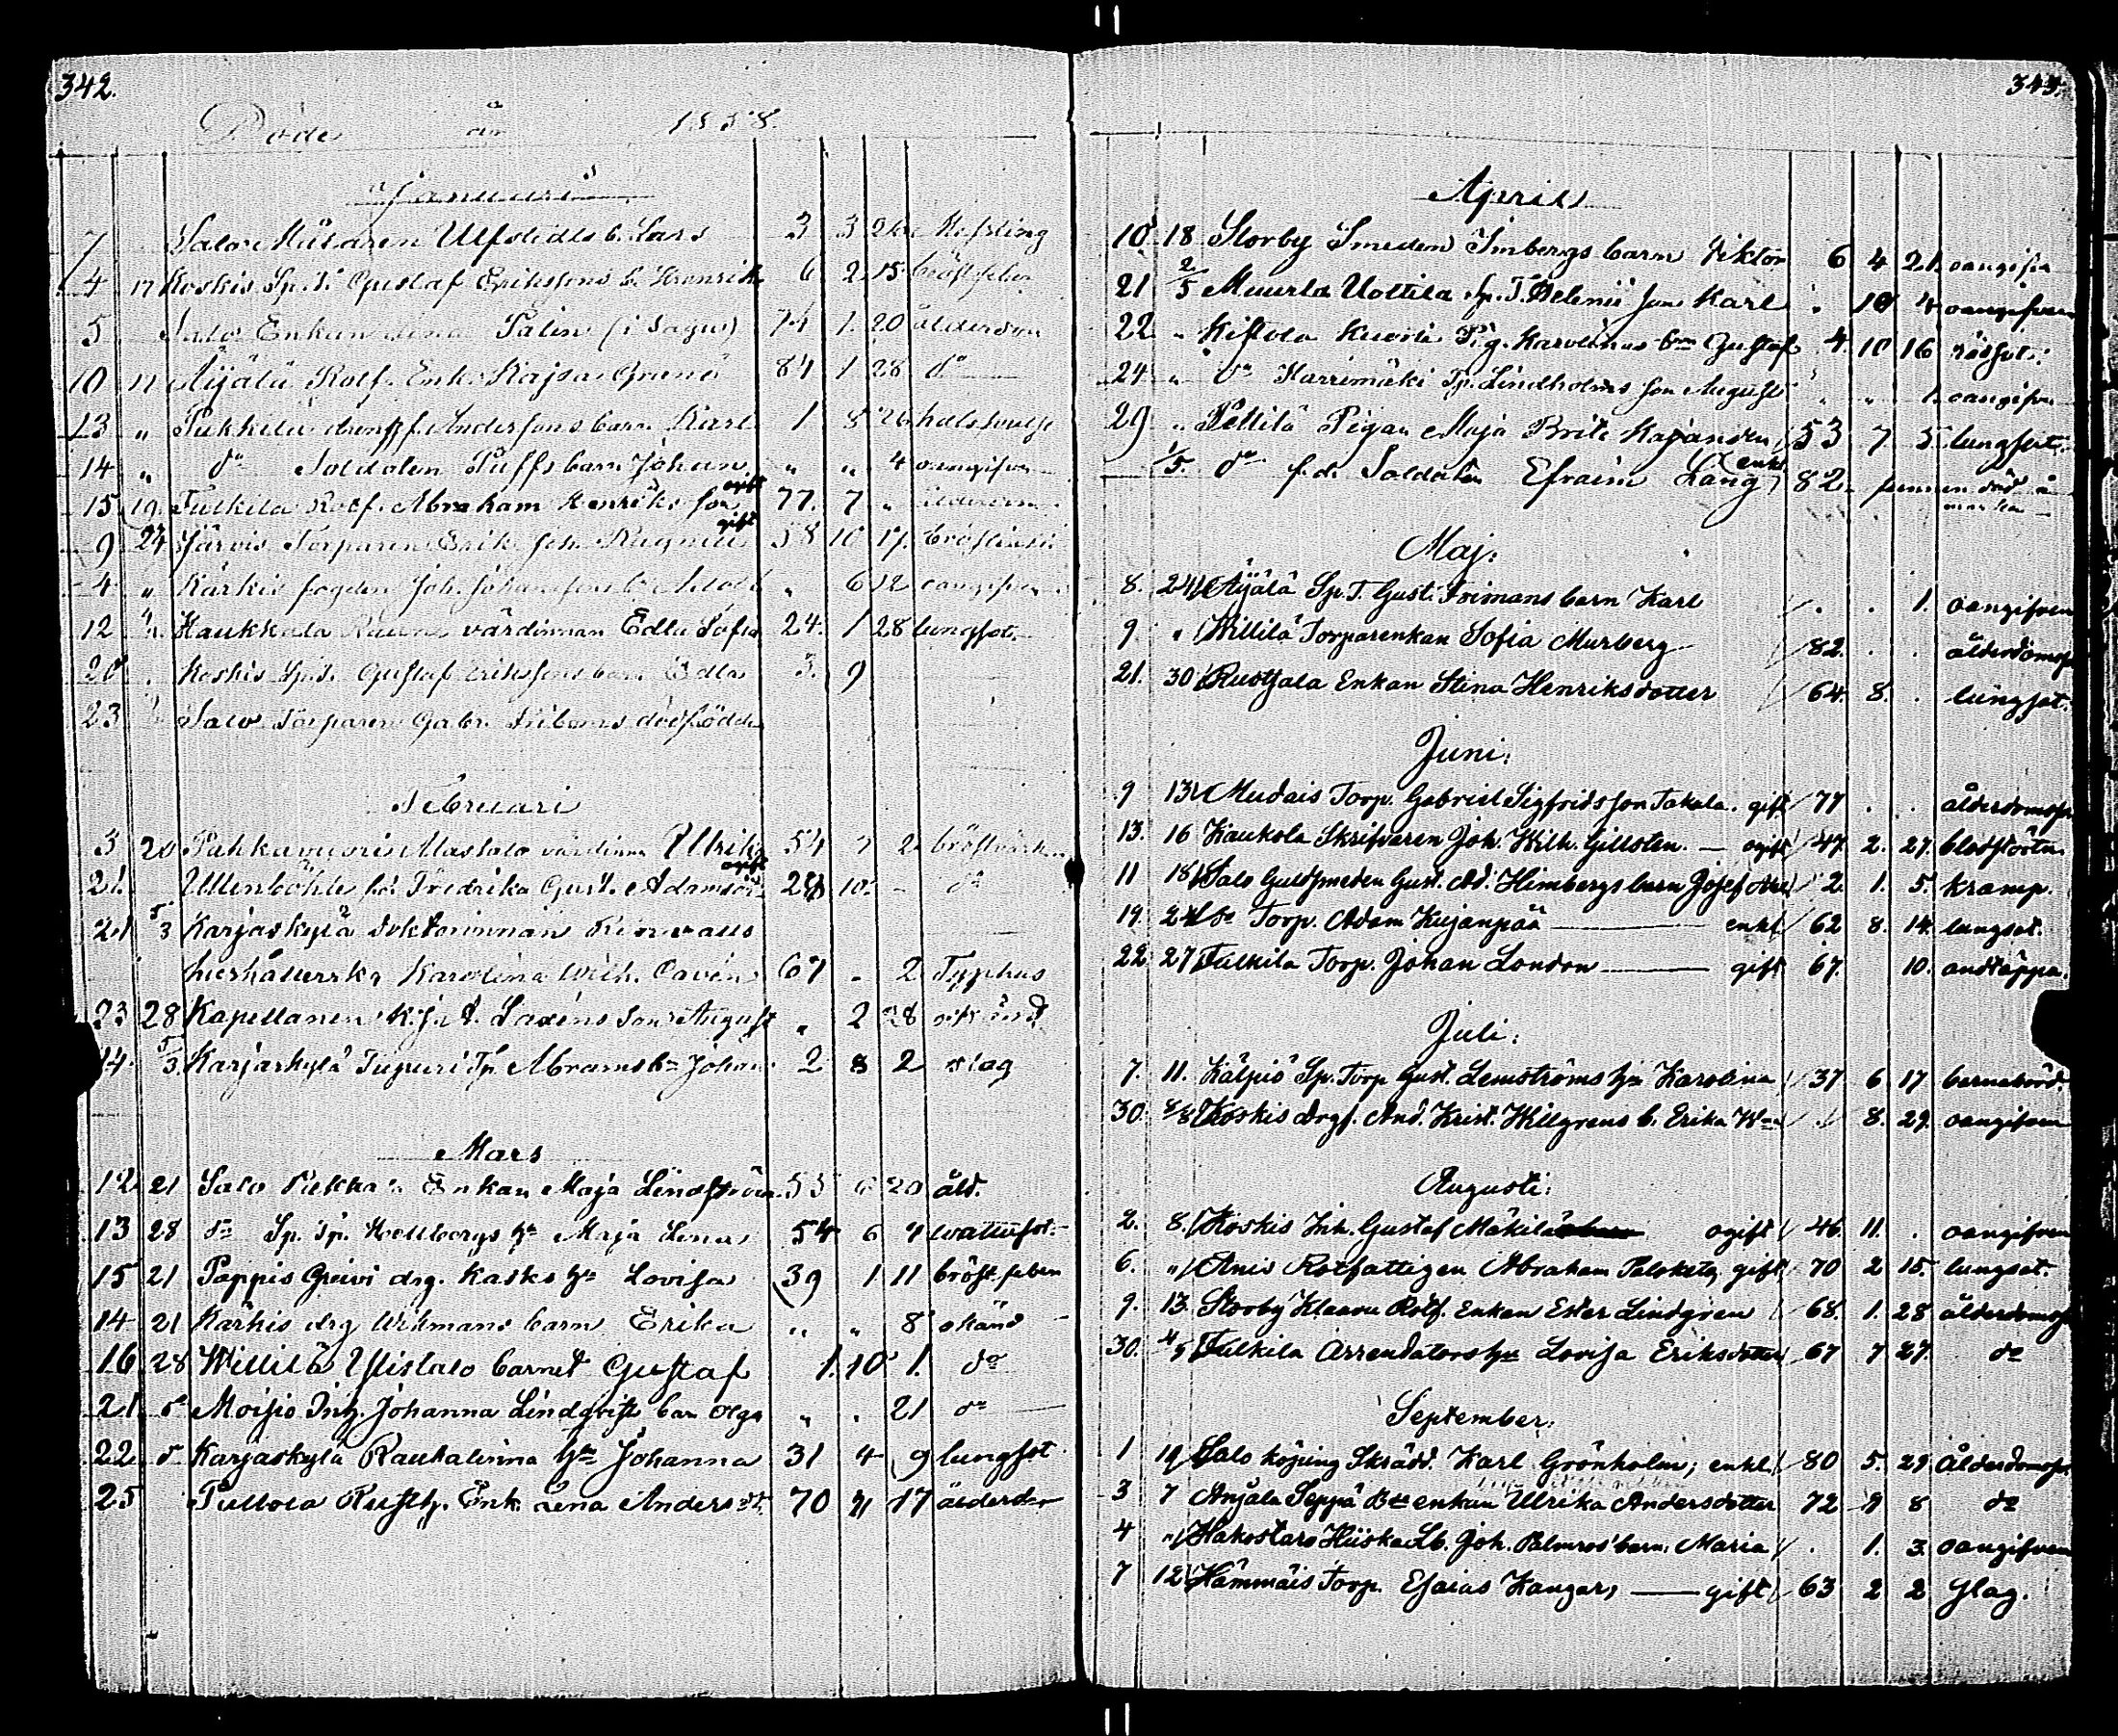 342.
Döde år 1858.
Januari
7 Salo Målaren Ulfstedts b. Lars 3 3 26 Messling
4 17 Koskis Sp. T. Gustaf Erikssons b. Henrik 6 2 15 bröstfeber
5 Salo Enkan Palin (i Sagu) 74 1 20 ålderdom
10 17 Äijälä Rotf. Enk. Kajsa Granö 84 1 28 do
13 " Pukkila Anderssons barn Karl 1 8 26 halssvulst
14 " do Soldaten Puffs barn Johan " " 4 oangifven
15 19 Tulkila Rotf. Abraham Henriks son ogift 77. 7 " ålderdom
9 24 Järvis Torparen Erik Joh. gift 58 10 17. bröstlidn
4 " Kärkis fogden Joh. Johanssons b. " 6 12 oangifven
12 " Haukkala värdinnan Edla Sofia 24. 1 28 lungsot.
20 . Koskis Sp. T. Gustaf Erikssons barn Edla 3. 9
23 Salo Torparen Gabr. dödfödda
Februari
3 20 Pahkavuori Alastalo värdinna Ulrika 54 7 2 bröstvärk
21. Ullenböhle Fredrika Gust. Adamsd. ogift 28 10. - do
21 5/3 Karjaskylä doktorinnan
hushållerska Karolina Wilh. Cavén 67 - 2 Typhus
23 28 Kapellanen K. J. A. Laxéns son August " 2 28 okänd
14. 5/3. Karjaskylä Tupuri Tp. Abrams bn Johan 2 8 2 slag
Mars
12 21 Salo Pukkila Enkan Maja Lindström 55 6 20 åld.
13 28 do Sp. Tp. Hellborgs hu Maja Lena 54 6 4 wattusot.
15 21 Pappis drg. Kasks hu Lovisa 39 1 11 bröst. feber
14 21 Kärkis drg Wikmans barn Erika " " 8 okänd
16 28 Willilä Ylistalo barnet Gustaf 1. 10 1. do
21 do Moisio Inh. Johanna Lindqvist barn Olga " . 21 do
22 do Karjaskylä Rautalinna hu Johanna 31 4 9 lungsot
25 Pullola Rusth. Enk. Lena Andersdt. 70 4 17 ålderdom
343.
April
10 18 Storby Smeden Imbergs barn Viktor 6 4 21. oangifven
21 2/5 Muurla Uottila Sp. T. Helenii son Karl . 10 4 oangifven
22 " Kistola Kuusti Pig. Karolinas bn Gustaf 4. 10 16 rödsot.
24 " do Harrimäki Tp. Lindholms son August " " 1. oangifven
29 " Pettilä Pigan Maja Brita Kajander 53 7 5 lungsot.
1/5. do f. d. Soldaten Efraim Lång enkl 82. funnen död å marken
Maj:
8. 24 Äijälä Sp. T. Gust. Toimans barn Karl . . 1. oangifven
9 " Willilä Torparenkan Sofia Murberg 82. . . ålderdomsv.
21. 30 Rustjala Enkan Stina Henriksdotter 64. 8. . lungsot.
Juni:
9 13 Mudais Torp. Gabriel Sigfridsson Takala. gift 77 . . ålderdomsv.
13. 16 Kaukola Skrifvaren Joh. Wilh. Gillsten. — ogift 47. 2. 27. blodstörtn.
11 18 Salo Guldsmeden Gust. Ad. Himbergs barn Josef 2. 1. 5. kramp.
19. 24 do Torp. Adam Kujanpää — enkl 62 8. 14. lungsot.
22. 27 Tulkila Torp. Johan London — gift 67. 10. andtäppa.
Juli:
7. 11. Kälpiö Sp. Torp Gust. Lemströms hu Karolina 37 6 17 barnabörd.
30. 8/8 Koskis drgf. And. Krist. Willgrens b. Erika Wma . 8. 29. oangifven
Augusti:
2. 8. Koskis Inh. Gustaf Mäkilä ogift 46. 11. . oangifven
6. " Anis Rotfattigen Abraham Paloketa, gift 70 2 15. lungsot.
9. 13. Storby Klaavu Rotf. enkan Ester Lindgren 68. 1. 28 ålderdomsv.
30. 4/9 Tulkila Arrendators hu Lovisa Eriksdotter 67 7 27. do
September:
1 19 Salo köping Skrädd. Karl Grönholm; enkl. 80 5. 29 Ålderdomsv.
3 7 Anjala Seppä Bde enkan Ulrika Andersdotter 72 9 8 do
4 " Hakostaro Hiiska Lb. Joh. Palmros' barn. Maria . 1. 3. oangifven
7 12 Hämmäis Torp. Esaias Kangar, — gift 63 2 2 Slag.